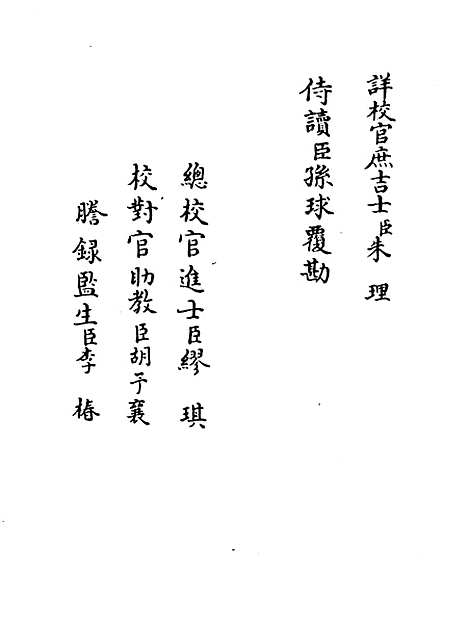 詳校官庶吉士臣朱理
侍讀臣孫球覆勘
總校官進士臣繆琪
校對官助教臣胡予襄
謄録監生臣李椿